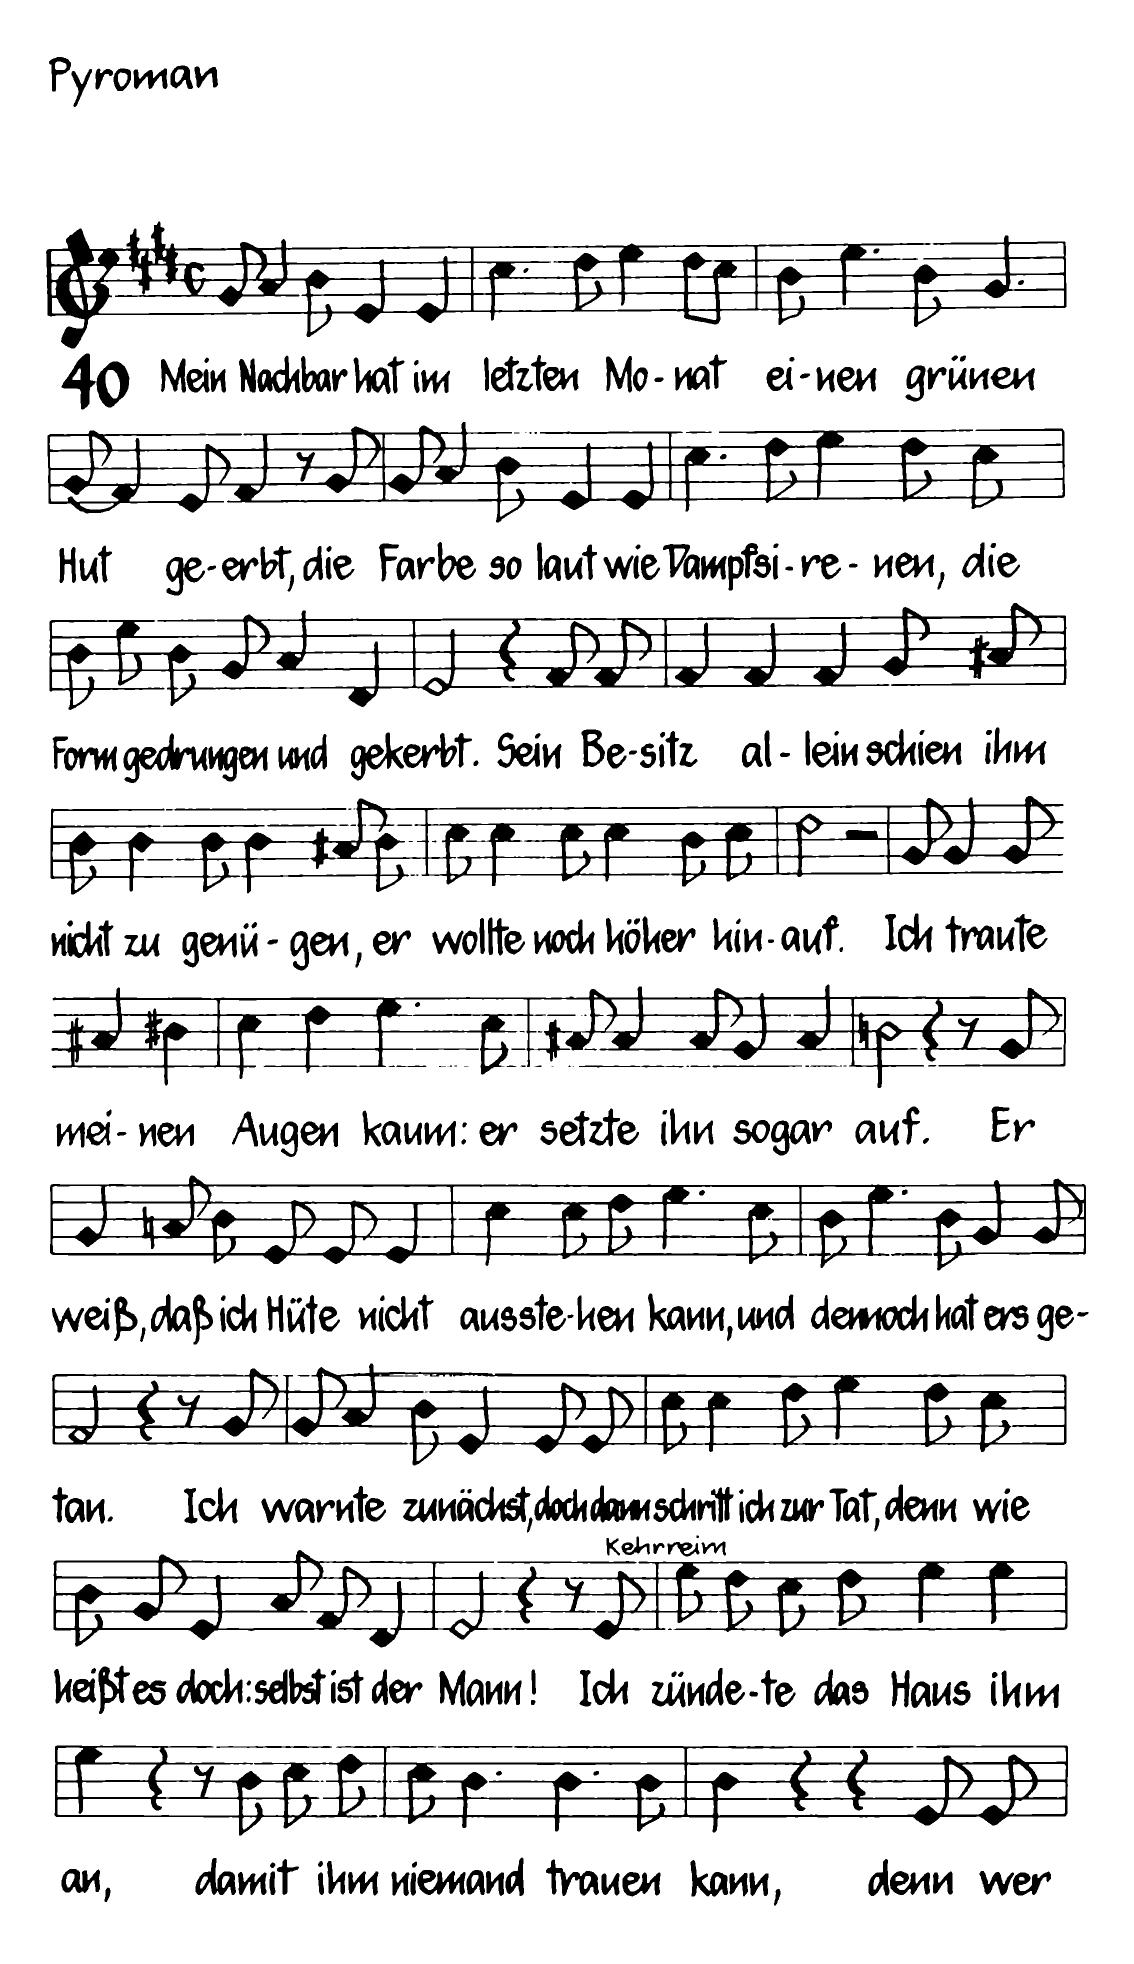 Pyroman
40 Mein Nachbar hat im letzten Mo-nat ei-nen grünen
Hut ge-erbt, die Farbe so laut wie Dampfsi-re-nen, die
Form gedrungen und gekerbt. Sein Be-sitz al-lein schien ihm
nicht zu genü-gen, er wollte noch höher hin-auf. Ich traute
mei-nen Augen kaum: er setzte ihn sogar auf. Er
weiß, daß ich Hüte nicht ausste-hen kann, und dennoch hat ers ge-
tan. Ich warnte zunächst, doch dann schritt ich zur Tat, denn wie
Kehrreim
heißt es doch: selbst ist der Mann! Ich zünde-te das Haus ihm
an, damit ihm niemand trauen kann, denn wer